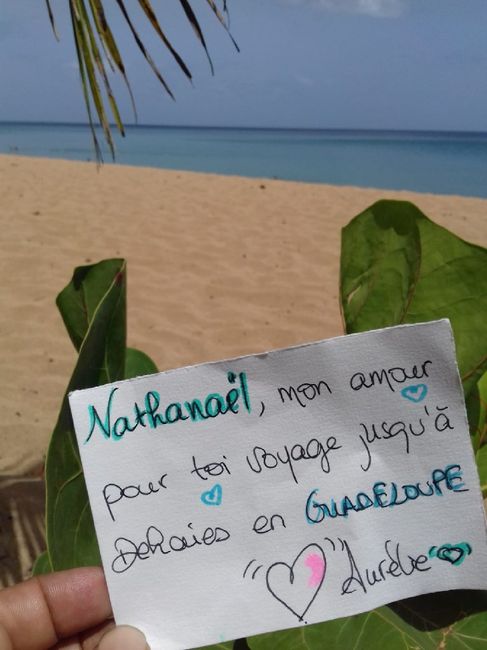 Nathanaël, mon amour
pour toi voyage jusqu'à
Dehaies en GUADELOUPE
Aurélie